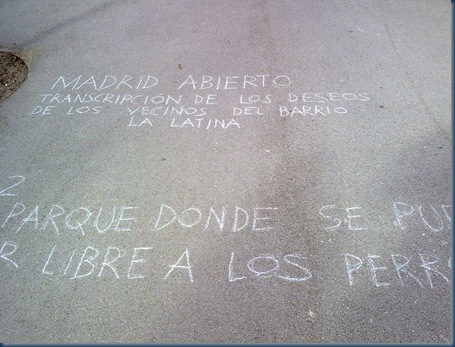 MADRID ABIERTO
TRANSCRIPCIÓN DE LOS DESEOS
DE LOS VECINOS DEL BARRIO
LA LATINA
2
PARQUE DONDE SE PUE
R LIBRE A LOS PERRO